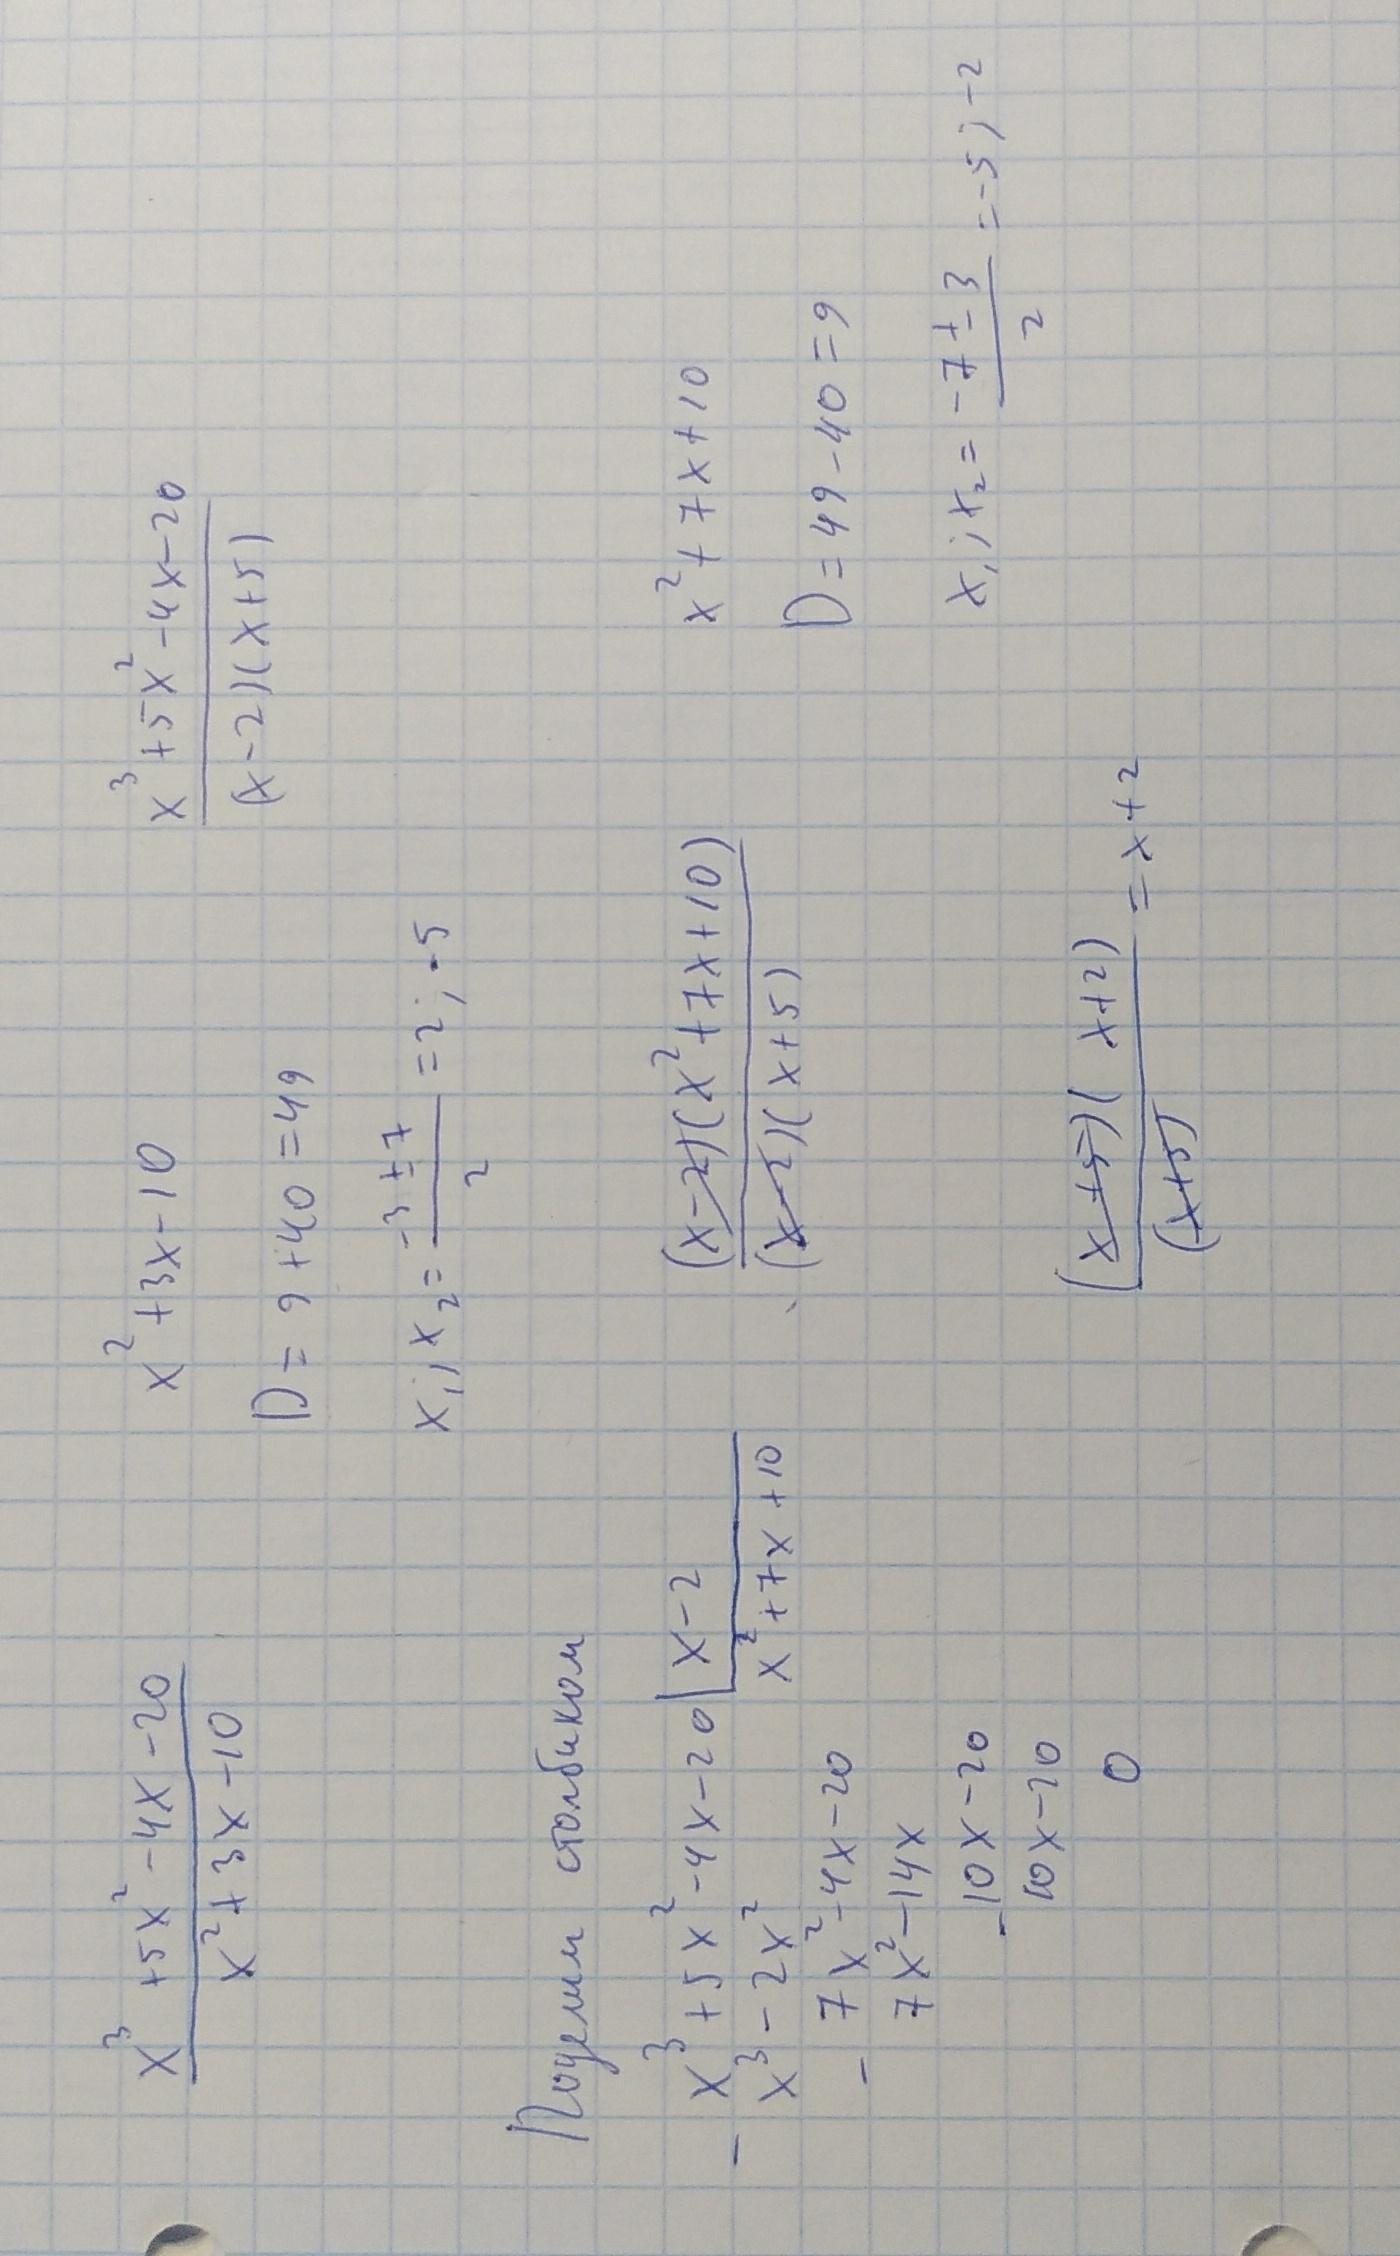 x³ + 5x² - 4x - 20
x² + 3x - 10
x² + 3x - 10
D = 9 + 40 = 49
x₁; x₂ = -3 ± 7 / 2 = 2; -5
x³ + 5x² - 4x - 20
(x - 2)(x + 5)
Поделим столбиком
- x³ + 5x² - 4x - 20 | x - 2
x³ - 2x² x² + 7x + 10
- 7x² - 4x - 20
7x² - 14x
- 10x - 20
10x - 20
0
(x - 2)(x² + 7x + 10)
(x - 2)(x + 5)
x² + 7x + 10
D = 49 - 40 = 9
x₁; x₂ = -7 ± 3 / 2 = -5; -2
(x + 5)(x + 2) = x + 2
(x + 5)